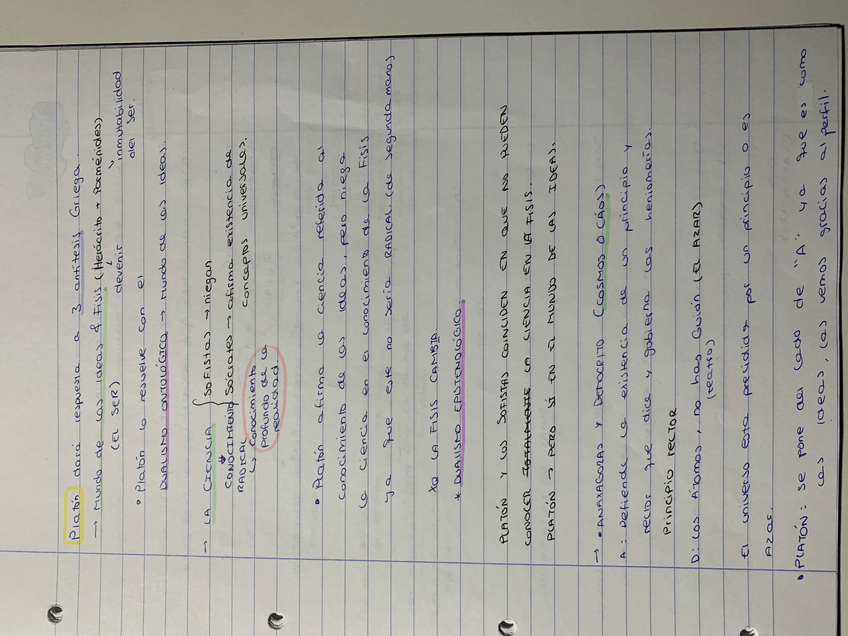 Platón dará respuesta a 3 antítesis Griega.
→ Mundo de las ideas & Fisis (Herácrito + Parménides)
(EL SER) devenir inmutabilidad
del ser.
• Platón lo resuelve con el
DUALISMO ONTOLÓGICO → Mundo de las ideas.
→ LA CIENCIA { SOFISTAS → niegan
CONOCIMIENTO SÓCRATES → afirma existencia de
RADICAL conceptos universales.
↳ conocimiento
profundo de la
realidad.
• Platón afirma la ciencia referida al
conocimiento de las ideas, pero niega
la ciencia en el conocimiento de la Fisis
ya que este no sería RADICAL (de segunda mano)
XQ LA FISIS CAMBIA.
* DUALISMO EPISTEMOLÓGICO.
PLATÓN Y LOS SOFISTAS COINCIDEN EN QUE NO PUEDEN
CONOCER TOTALMENTE LA CIENCIA EN LA FISIS.
PLATÓN → PERO SÍ EN EL MUNDO DE LAS IDEAS.
→ • ANAXÁGORAS Y DEMOCRITO (COSMOS O CAOS)
A: Defiende la existencia de un principio y
rector que dice y gobierna las
Principio rector
D: Los Átomos, no has Guión (EL AZAR)
(teatro)
El universo esta presidida por un principio o es
AZAR.
• PLATÓN: se pone del lado de "A" ya que es como
las ideas, las vemos gracias al perfil.